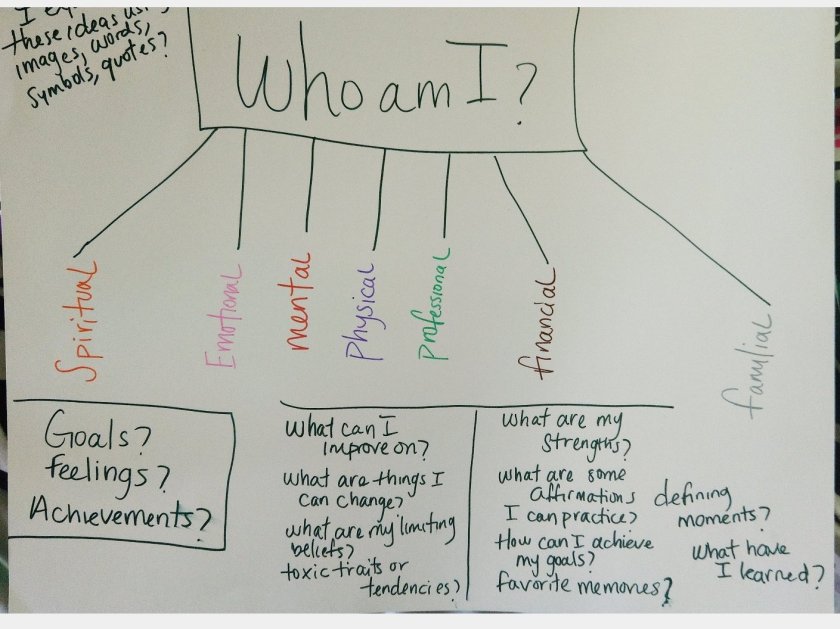 I
these ideas
images, words,
symbols, quotes?
Who am I?
Spiritual
Emotional
mental
Physical
Professional
financial
familial
Goals?
feelings?
Achievements?
What can I
improve on?
what are things I
can change?
what are my limiting
beliefs?
toxic traits or
tendencies?
What are my
Strengths?
what are some
affirmations
I can practice?
How can I achieve
my goals?
favorite memories?
defining
moments?
What have
I learned?